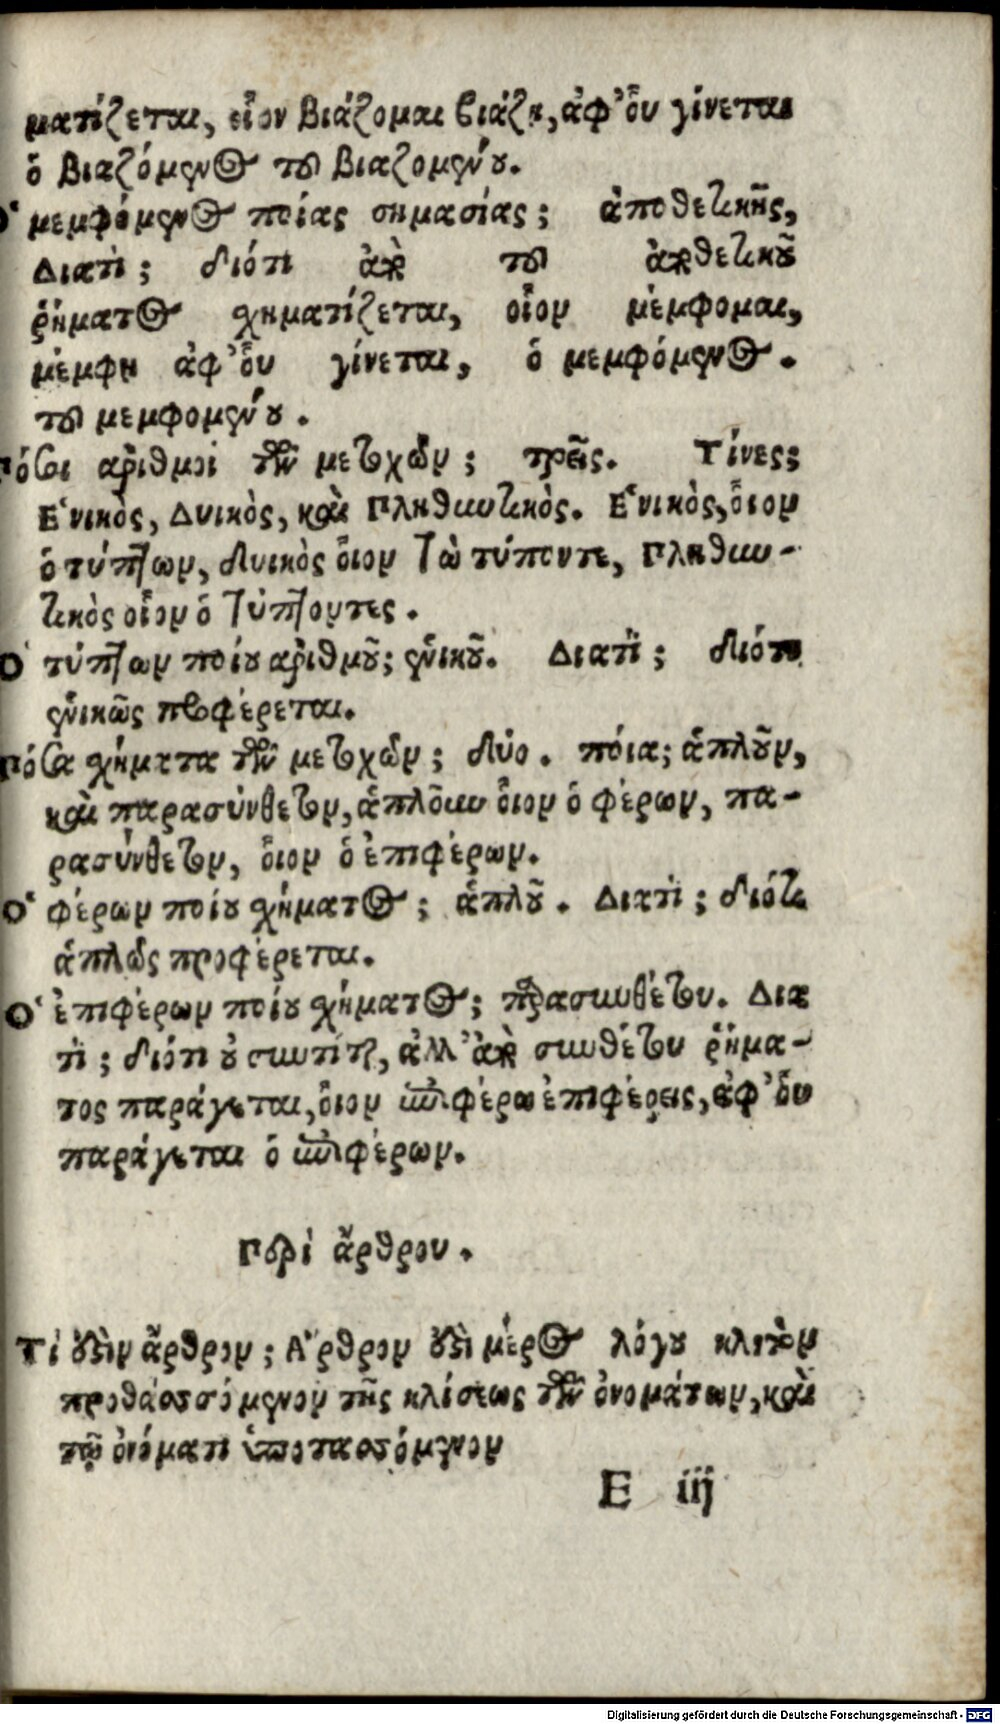 ματίζεται, οἷον βιάζομαι βιάζη, ἀφ' οὗ γίνεται
ὁ βιαζόμενος τοῦ βιαζομένου.
Ὁ μεμφόμενος ποίας σημασίας; ἀποθετικῆς,
Διατὶ; διότι ἀπὸ τοῦ ἀποθετικοῦ
ῥήματος χηματίζεται, οἷον μέμφομαι,
μέμφη ἀφ' οὗ γίνεται, ὁ μεμφόμενος.
τοῦ μεμφομένου.
Πόσοι ἀριθμοὶ τῶν μετοχῶν; τρεῖς. Τίνες;
Ἑνικὸς, Δυικὸς, καὶ Πληθυντικὸς. Ἑνικὸς, οἷον
ὁ τύπτων, δυικὸς οἷον τὼ τύποντε, Πληθυν-
τικὸς οἷον ὁ τύπτοντες.
Ὁ τύπτων ποίου ἀριθμοῦ; ἑνικοῦ. Διατὶ; διότι
ἑνικῶς προφέρεται.
Πόσα χήματα τῶν μετοχῶν; δύο. πόια; ἁπλοῦν,
καὶ παρασύνθετον, ἁπλοῦν οἷον ὁ φέρων, πα-
ρασύνθετον, οἷον ὁ ἐπιφέρων.
Ὁ φέρων ποίου χήματος; ἁπλοῦ. Διατὶ; διότι
ἁπλῶς προφέρεται.
Ὁ ἐπιφέρων ποίου χήματος; παρασυνθέτου. Δια
τὶ; διότι οὐ συντίθ, ἀλλ' ἀπὸ συνθέτου ῥήμα-
τος παράγεται, οἷον ἐπιφέρω ἐπιφέρεις, ἀφ' οὗ
παράγεται ὁ ἐπιφέρων.
Περὶ ἄρθρου.
Τί ἐστὶν ἄρθρον; Ἄρθρον ἐστὶ μέρος λόγου κλιτὸν
προτασσόμενον τῆς κλίσεως τῶν ὀνομάτων, καὶ
τῷ ὀνόματι ὑποτασσόμενον
E iij
Digitalisierung gefördert durch die Deutsche Forschungsgemeinschaft - DFG